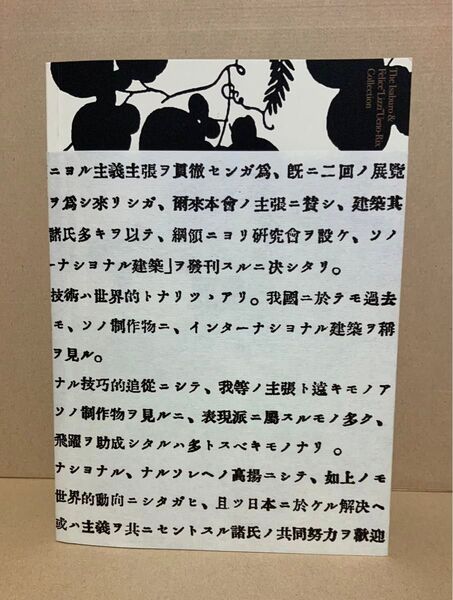 The Isaburo &
Felice "Lizzi" Ueno-Rix
Collection
ニヨル主義主張ヲ貫徹センガ爲、既ニ二回ノ展覽
ヲ爲シ來リシガ、爾來本會ノ主張ニ賛シ、建築其
諸氏多キヲ以テ、綱領ニヨリ硏究會ヲ設ケ、ソノ
ーナショナル建築」ヲ發刊スルニ決シタリ。
技術ハ世界的トナリツヽアリ。我國ニ於テモ過去
モ、ソノ制作物ニ、インターナショナル建築ヲ稱
ヲ見ル。
ナル技巧的追從ニシテ、我等ノ主張ト遠キモノア
ソノ制作物ヲ見ルニ、表現派ニ屬スルモノ多ク、
飛躍ヲ助成シタルハ多トスベキモノナリ。
ナショナル、ナルソレヘノ高揚ニシテ、如上ノモ
世界的動向ニシタガヒ、且ツ日本ニ於ケル解決ヘ
或ハ主義ヲ共ニセントスル諸氏ノ共同努力ヲ歡迎